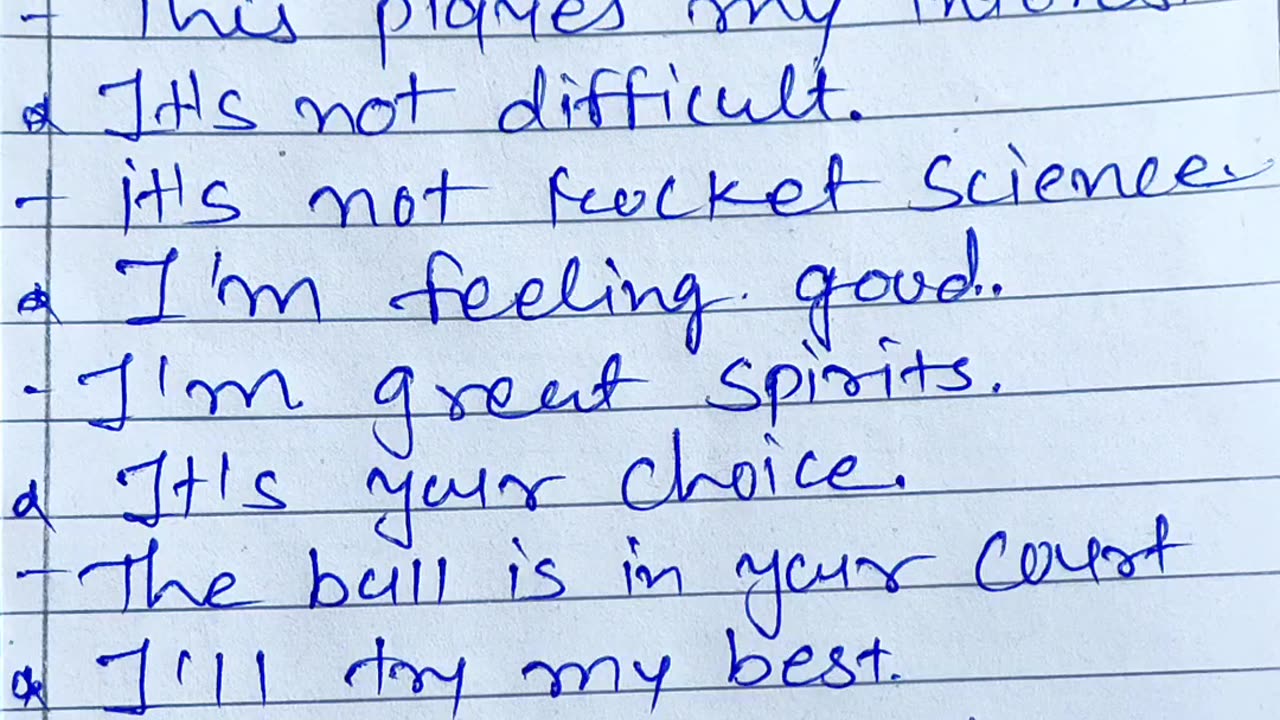 - This piques my interest
It's not difficult.
- it's not rocket science.
I'm feeling good.
- I'm great spirits.
It's your choice.
- The ball is in your court
I'll try my best.